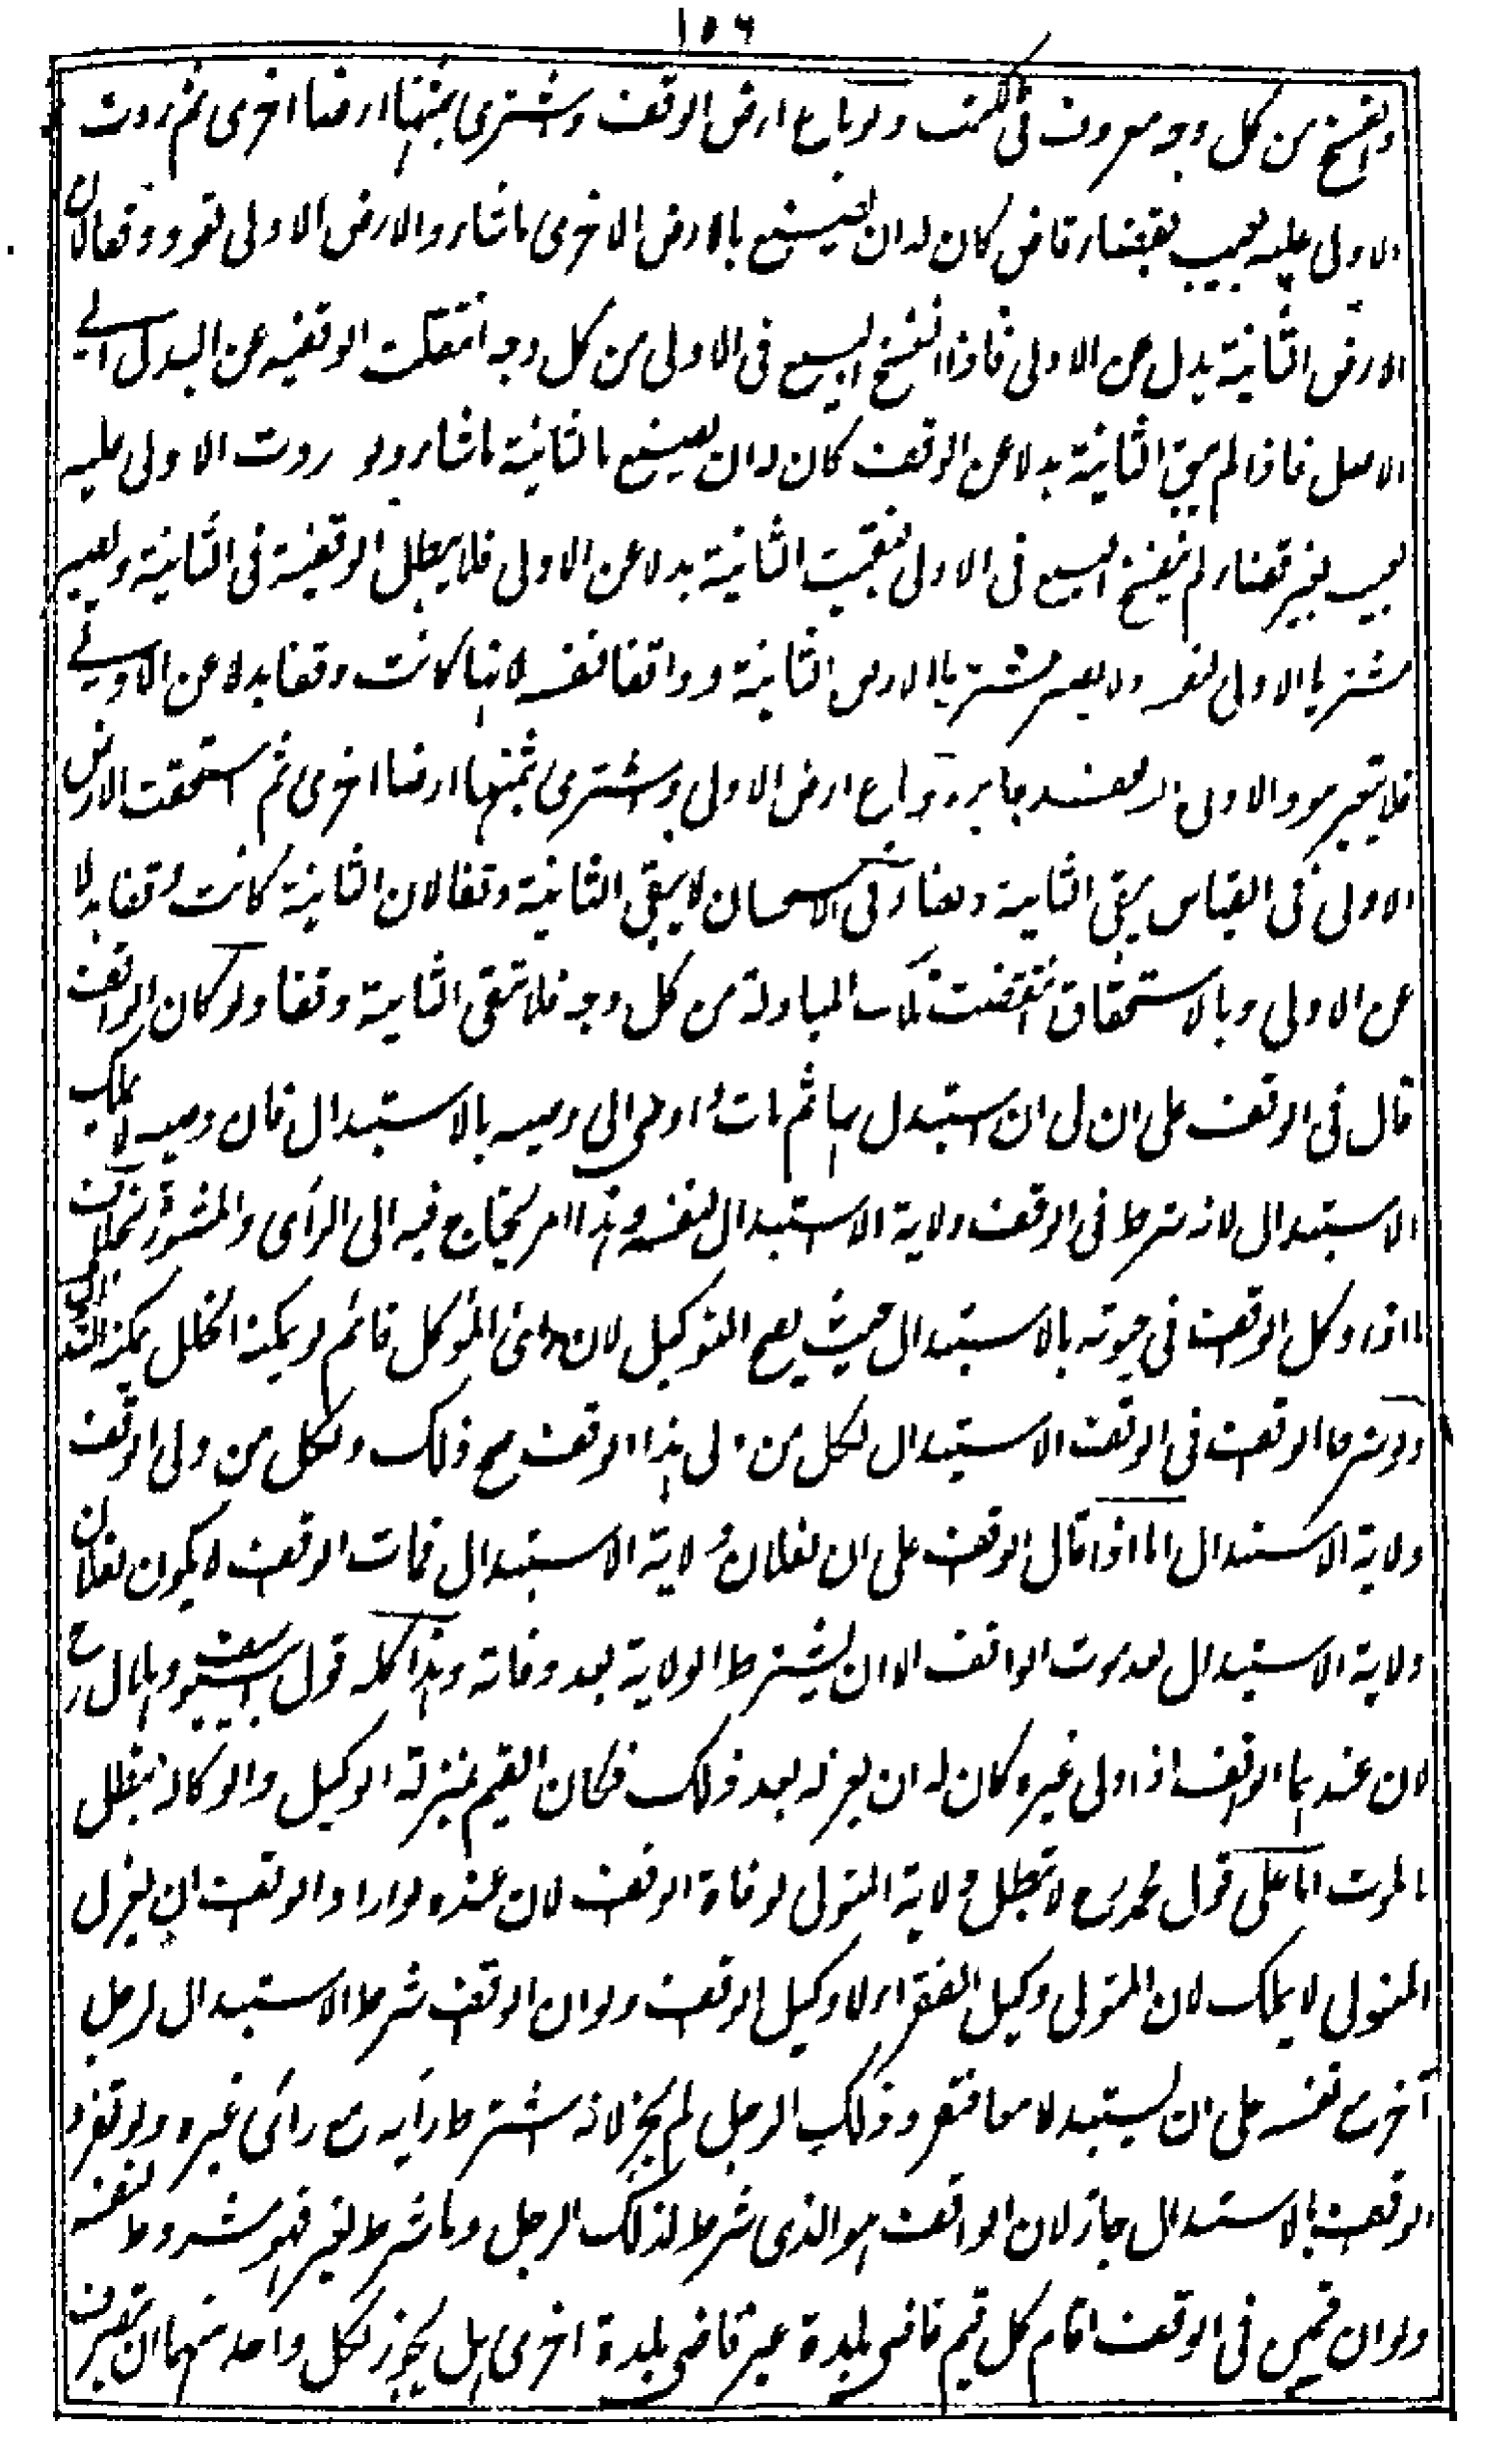 ١٥٦
والفسخ من كل وجه معروف فى الكتب ولو باع ارض الوقف واشترى بثمنها ارضا اخرى ثم ردت
الاولى عليه بعيب بقضاء قاض كان له ان يصنع بالارض الاخرى ماشاء والارض الاولى تعود وقفا لان
الارض الثانية بدل عن الاولى فاذا انفسخ البيع فى الاولى من كل وجه انتقلت الوقفية عن البدل الى
الاصل فاذا لم يبق الثانية بدلا عن الوقف كان له ان يصنع بالثانية ماشاء ولو ردت الاولى عليه
بعيب بغير قضاء لم ينفسخ البيع فى الاولى فبقيت الثانية بدلا عن الاولى فلا يبطل الوقفية فى الثانية ويصير
مشتريا الاولى لنفسه ولا يصير مشتريا الارض الثانية وواقفا لنفسه لانها كانت وقفا بدلا عن الاولى
فلا يتغير هو والاولى باع ارض الاولى واشترى بثمنها ارضا اخرى ثم استحقت الارض
الاولى فى القياس يبقى الثانية وقفا وفى الاستحسان لا يبقى الثانية وقفا لان الثانية كانت وقفا بدلا
عن الاولى وبالاستحقاق انتقضت تلك المبادلة من كل وجه فلا تبقى الثانية وقفا ولو كان الواقف
قال فى الوقف على ان لى ان استبدل بها ثم مات واوصى الى وصيه بالاستبدال فان وصيه لا يملك
الاستبدال لانه شرط فى الوقف ولاية الاستبدال لنفسه وهذا امر يحتاج فيه الى الرأى والمشورة بخلاف
ما اذا وكل الواقف فى حيوته بالاستبدال حيث يصح التوكيل لان رائ الموكل قائم لو يمكنه الخلل يمكنه التدارك
ولو شرط الواقف فى الوقف الاستبدال لكل من ولى هذا الوقف صح ذلك ولكل من ولى الوقف
ولاية الاستبدال اما اذا قال الواقف على ان لفلان ولاية الاستبدال فمات الواقف لا يكون لفلان
ولاية الاستبدال بعد موت الواقف الا ان يشترط الولاية بعد وفاته وهذا كله قول ابى يوسف وهلال رح
لان عندهما الواقف اذا ولى غيره كان له ان يعزله بعد ذلك فكان القيم بمنزلة الوكيل والوكالة تبطل
بالموت اما على قول محمد رح لا تبطل ولاية المتولى لوفاة الواقف لان عنده لو اراد الواقف ان يعزل
المتولى لا يملك لان المتولى وكيل الفقراء لا وكيل الواقف ولو ان الواقف شرط الاستبدال لرجل
آخر مع نفسه على ان يستبدلا معا فتفرد ذلك الرجل لم يجز لانه اشترط رأيه مع رائ غيره ولو تفرد
الواقف بالاستبدال جاز لان الواقف هو الذى شرط لذلك الرجل وما شرط لغيره فهو مشروط لنفسه
ولو ان قيمين فى الوقف اقام كل قيم قاضى بلدة غير قاضى بلدة اخرى هل يجوز لكل واحد منهما ان يتصرف